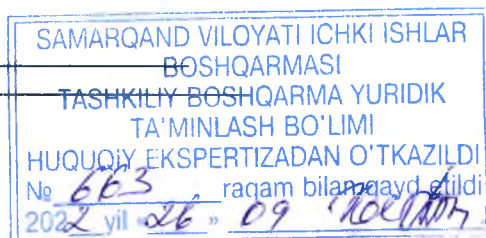 SAMARQAND VILOYATI ICHKI ISHLAR
BOSHQARMASI
TASHKILIY BOSHQARMA YURIDIK
TA'MINLASH BO'LIMI
HUQUQIY EKSPERTIZADAN O'TKAZILDI
№ 663 raqam bilan qayd etildi
2022 yil "26" 09